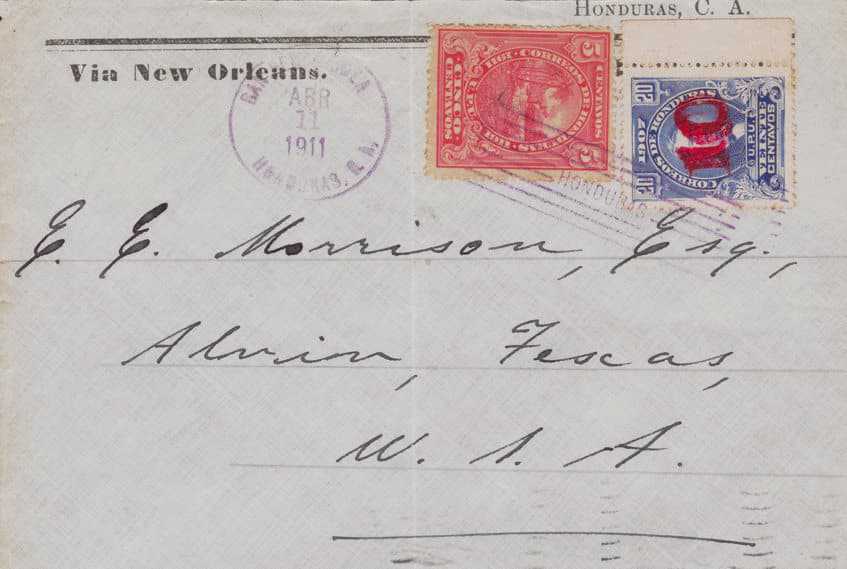 HONDURAS, C. A.
Via New Orleans.
ABR
11
1911
HONDURAS, C. A.
5 CENTAVOS
CORREOS DE HONDURAS
1911 1911
CINCO CENTAVOS
5
20 20
1907
CORREOS DE HONDURAS
U.P.U.
VEINTE
CENTAVOS
10
HONDURAS
E. E. Morrison, Esq.,
Alvin, Texas,
U. S. A.